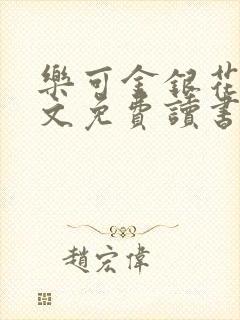 樂可金銀花
文免費讀書
趙宏偉